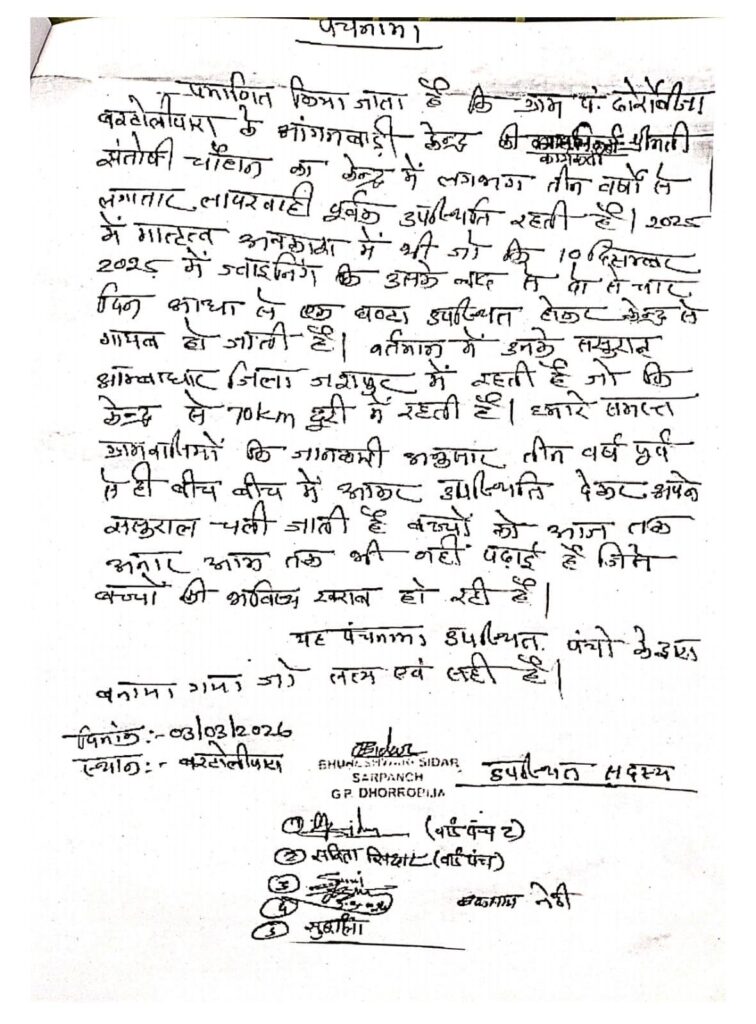 पंचनामा
प्रमाणित किया जाता है कि ग्राम पं. ढोर्रोबीजा
बरटोलीपारा के आंगनबाड़ी केन्द्र की श्रीमती
कार्यकर्ता
संतोषी चौहान का केन्द्र में लगभग तीन वर्षों से
लगातार लापरवाही पूर्वक उपस्थिति रहती है। 2025
में मातृत्व अवकाश में थी जो कि 10 दिसम्बर
2025 में ज्वाइनिंग कि उसके बाद से दो से चार
दिन आधा से एक घण्टा उपस्थित होकर केन्द्र से
गायब हो जाती है। वर्तमान में उनके ससुराल
आम्बाघाट जिला जशपुर में रहती है जो कि
केन्द्र से 70km दुरी में रहती है। हमारे समस्त
ग्रामवासियों कि जानकारी अनुसार तीन वर्ष पूर्व
से ही बीच बीच में आकर उपस्थिति देकर अपने
ससुराल चली जाती है बच्चों को आज तक
अनार आम तक भी नहीं पढ़ाई है जिससे
बच्चों की भविष्य खराब हो रही है।
यह पंचनामा उपस्थित पंचो के द्वारा
बनाया गया जो सत्य एवं सही है।
दिनांक :- 03/03/2026
स्थान :- बरटोलीपारा
BHUNESHWAR SIDAR
SARPANCH
G.P. DHORROBIJA
उपस्थित सदस्य
① (वार्ड पंच 2)
② सविता सिदार (वार्ड पंच)
③
④
⑤ सुशीला